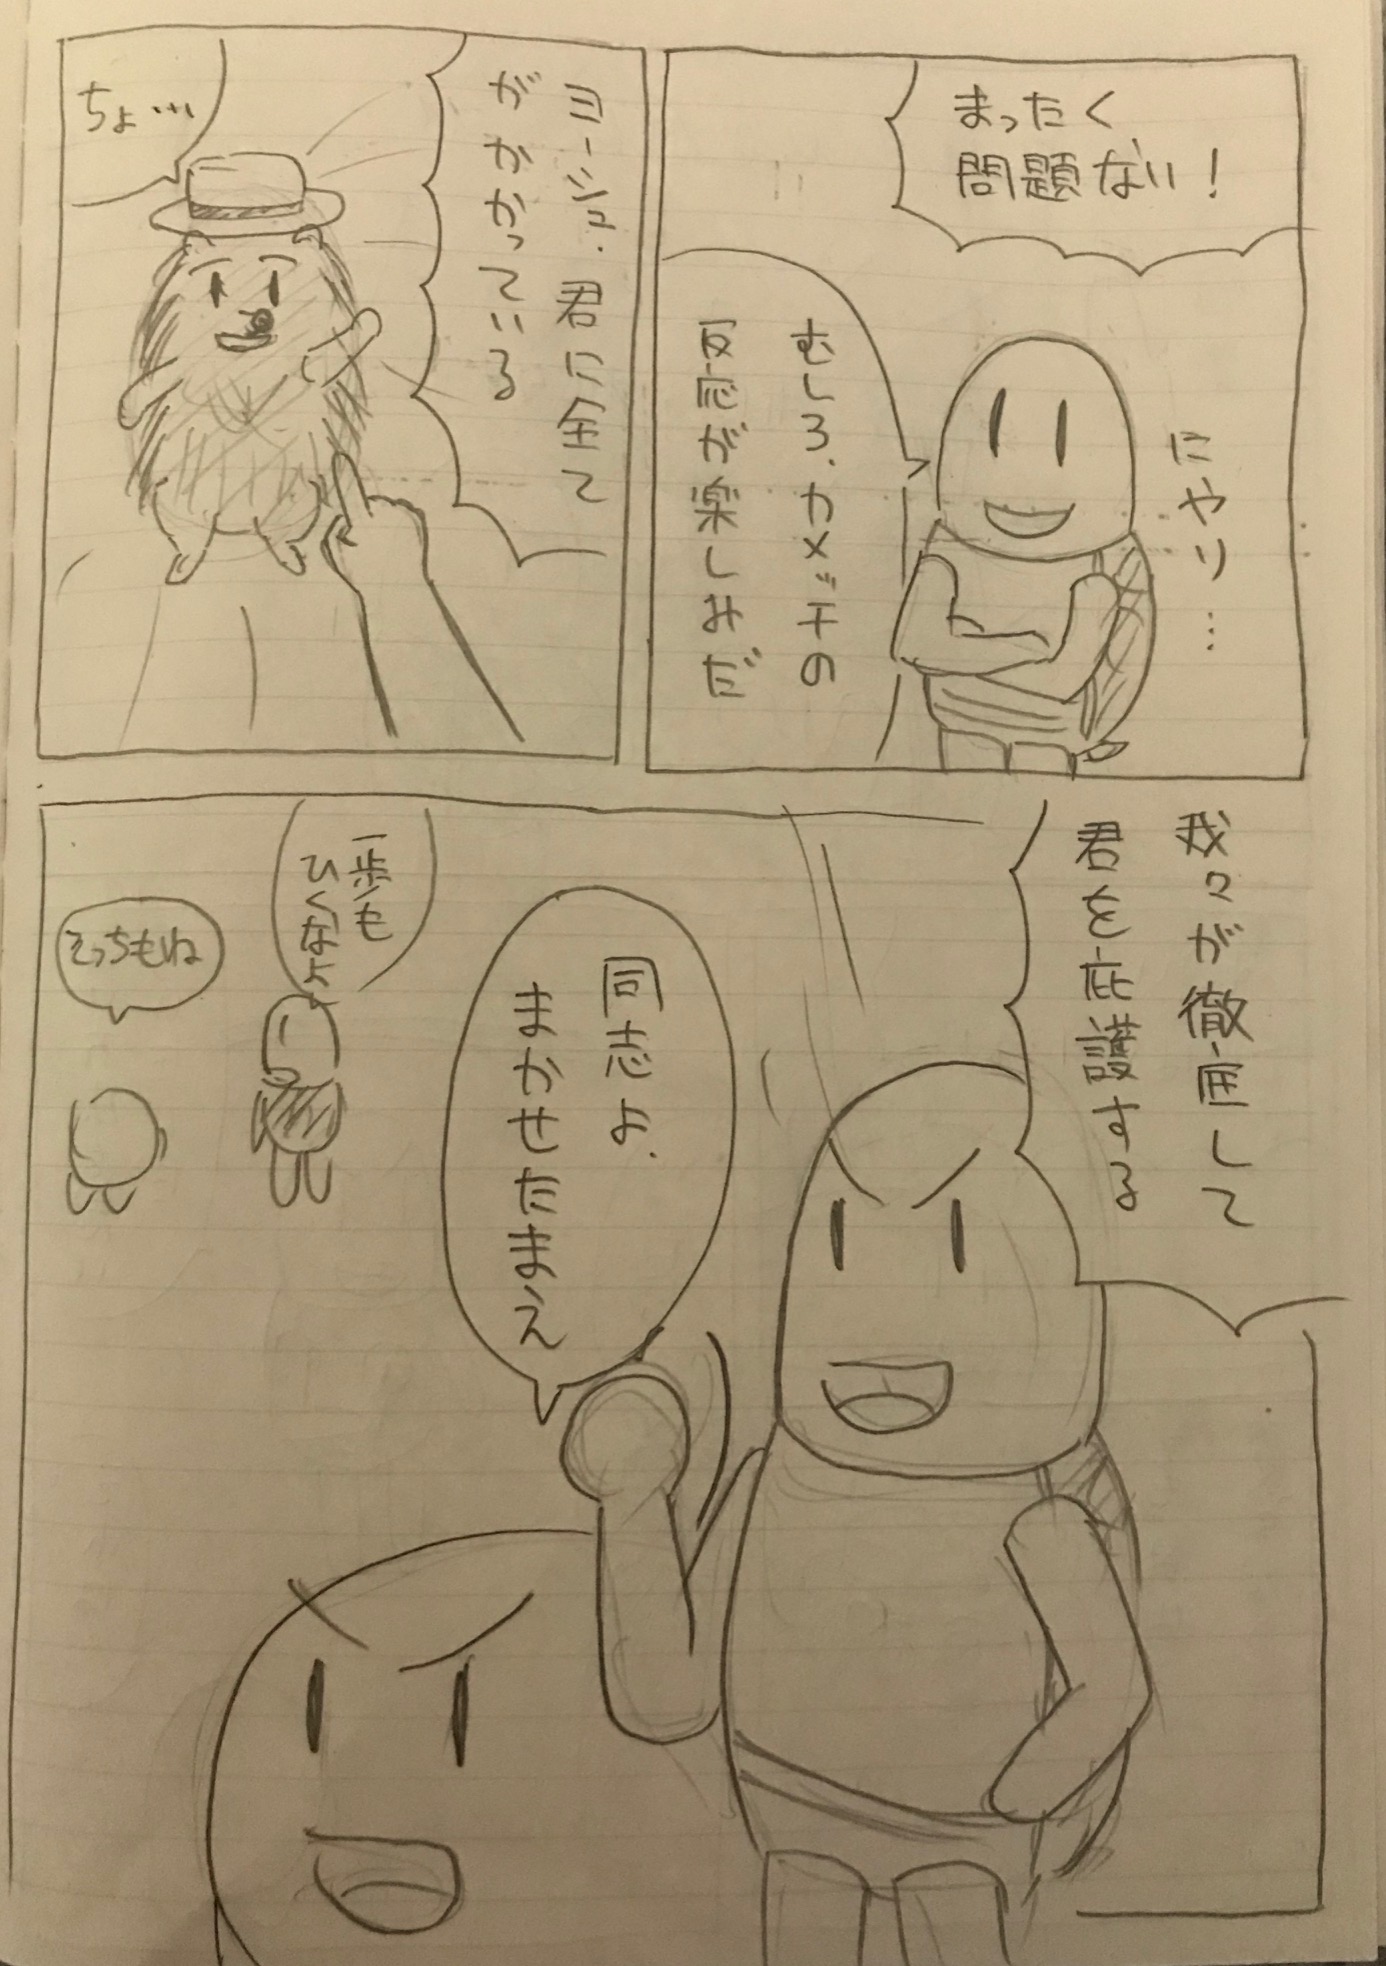 まったく
問題ない！
にやり…
むしろ、カメッチの
反応が楽しみだ
ヨーシュ、君に全て
がかかっている
ちょ…
我々が徹底して
君を庇護する
同志よ、
まかせたまえ
一歩も
ひくなよ
そっちもね